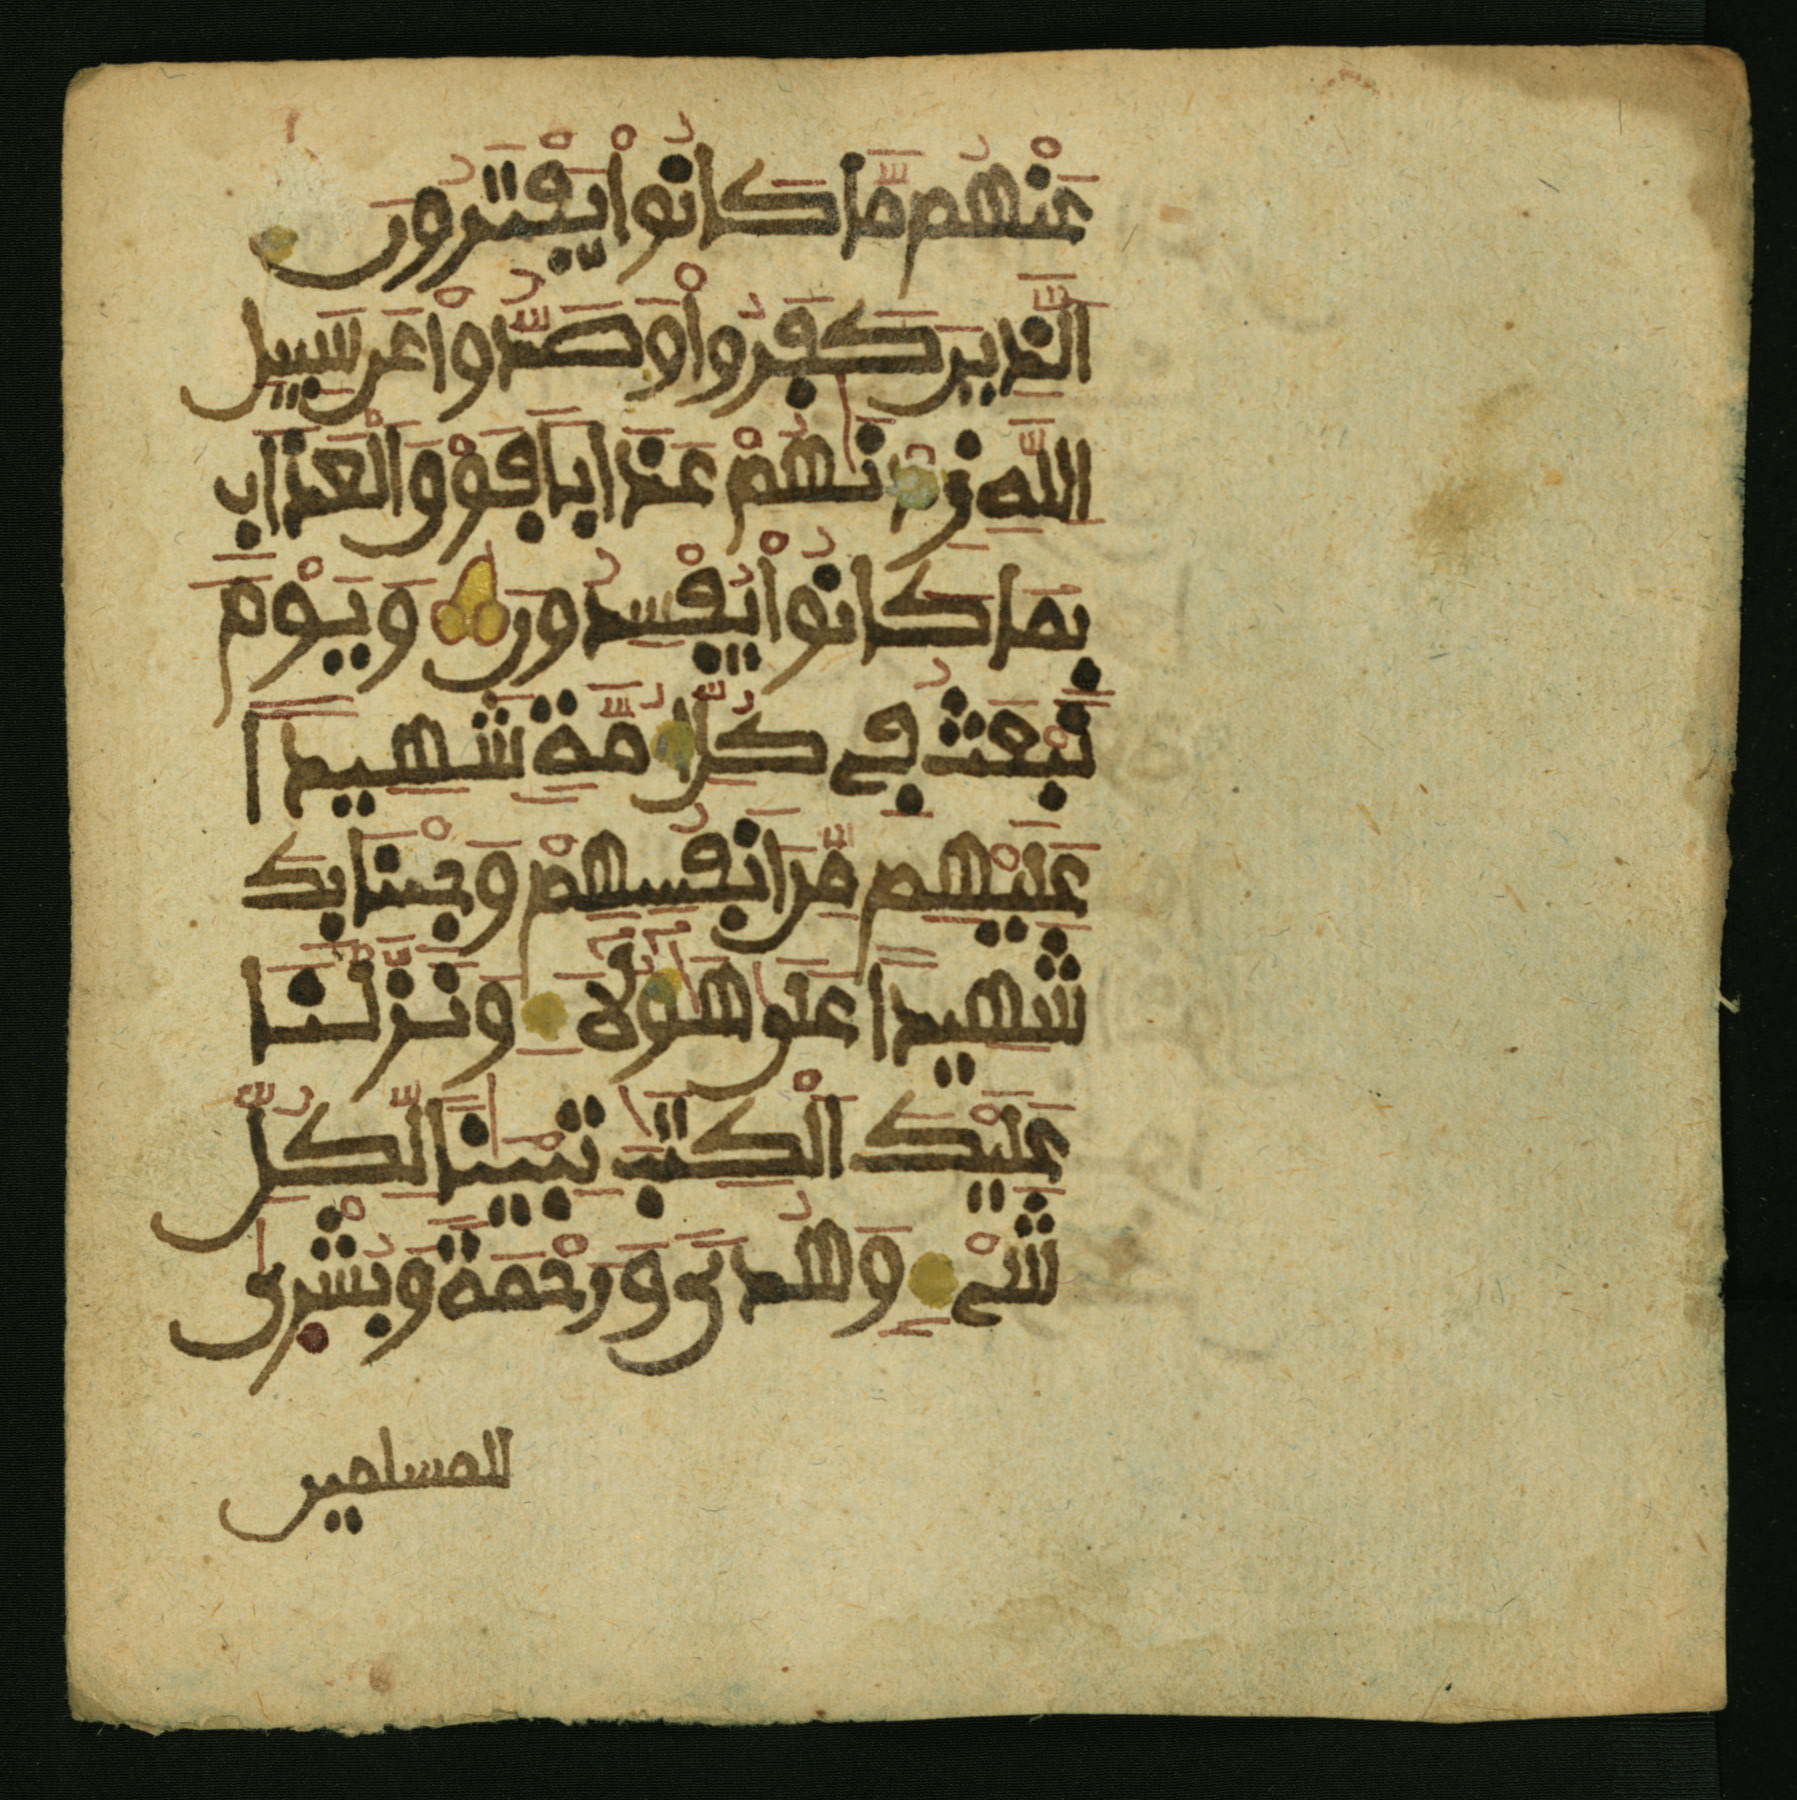 عَنْهُم مَّا كَانُواْ يَفْتَرُونَ
الَّذِينَ كَفَرُواْ وَصَدُّواْ عَن سَبِيلِ
اللَّهِ زِدْنَٰهُمْ عَذَابًا فَوْقَ الْعَذَابِ
بِمَا كَانُواْ يُفْسِدُونَ وَيَوْمَ
نَبْعَثُ فِے كُلِّ أُمَّةٍ شَهِيدًا
عَلَيْهِم مِّنَ اَنفُسِهِمْ وَجِئْنَا بِكَ
شَهِيدًا عَلَىٰ هَٰؤُلَآءِ وَنَزَّلْنَا
عَلَيْكَ الْكِتَٰبَ تِبْيَٰنًا لِّكُلِّ
شَےْءٍ وَهُدًى وَرَحْمَةً وَبُشْرَىٰ
للمسلمين